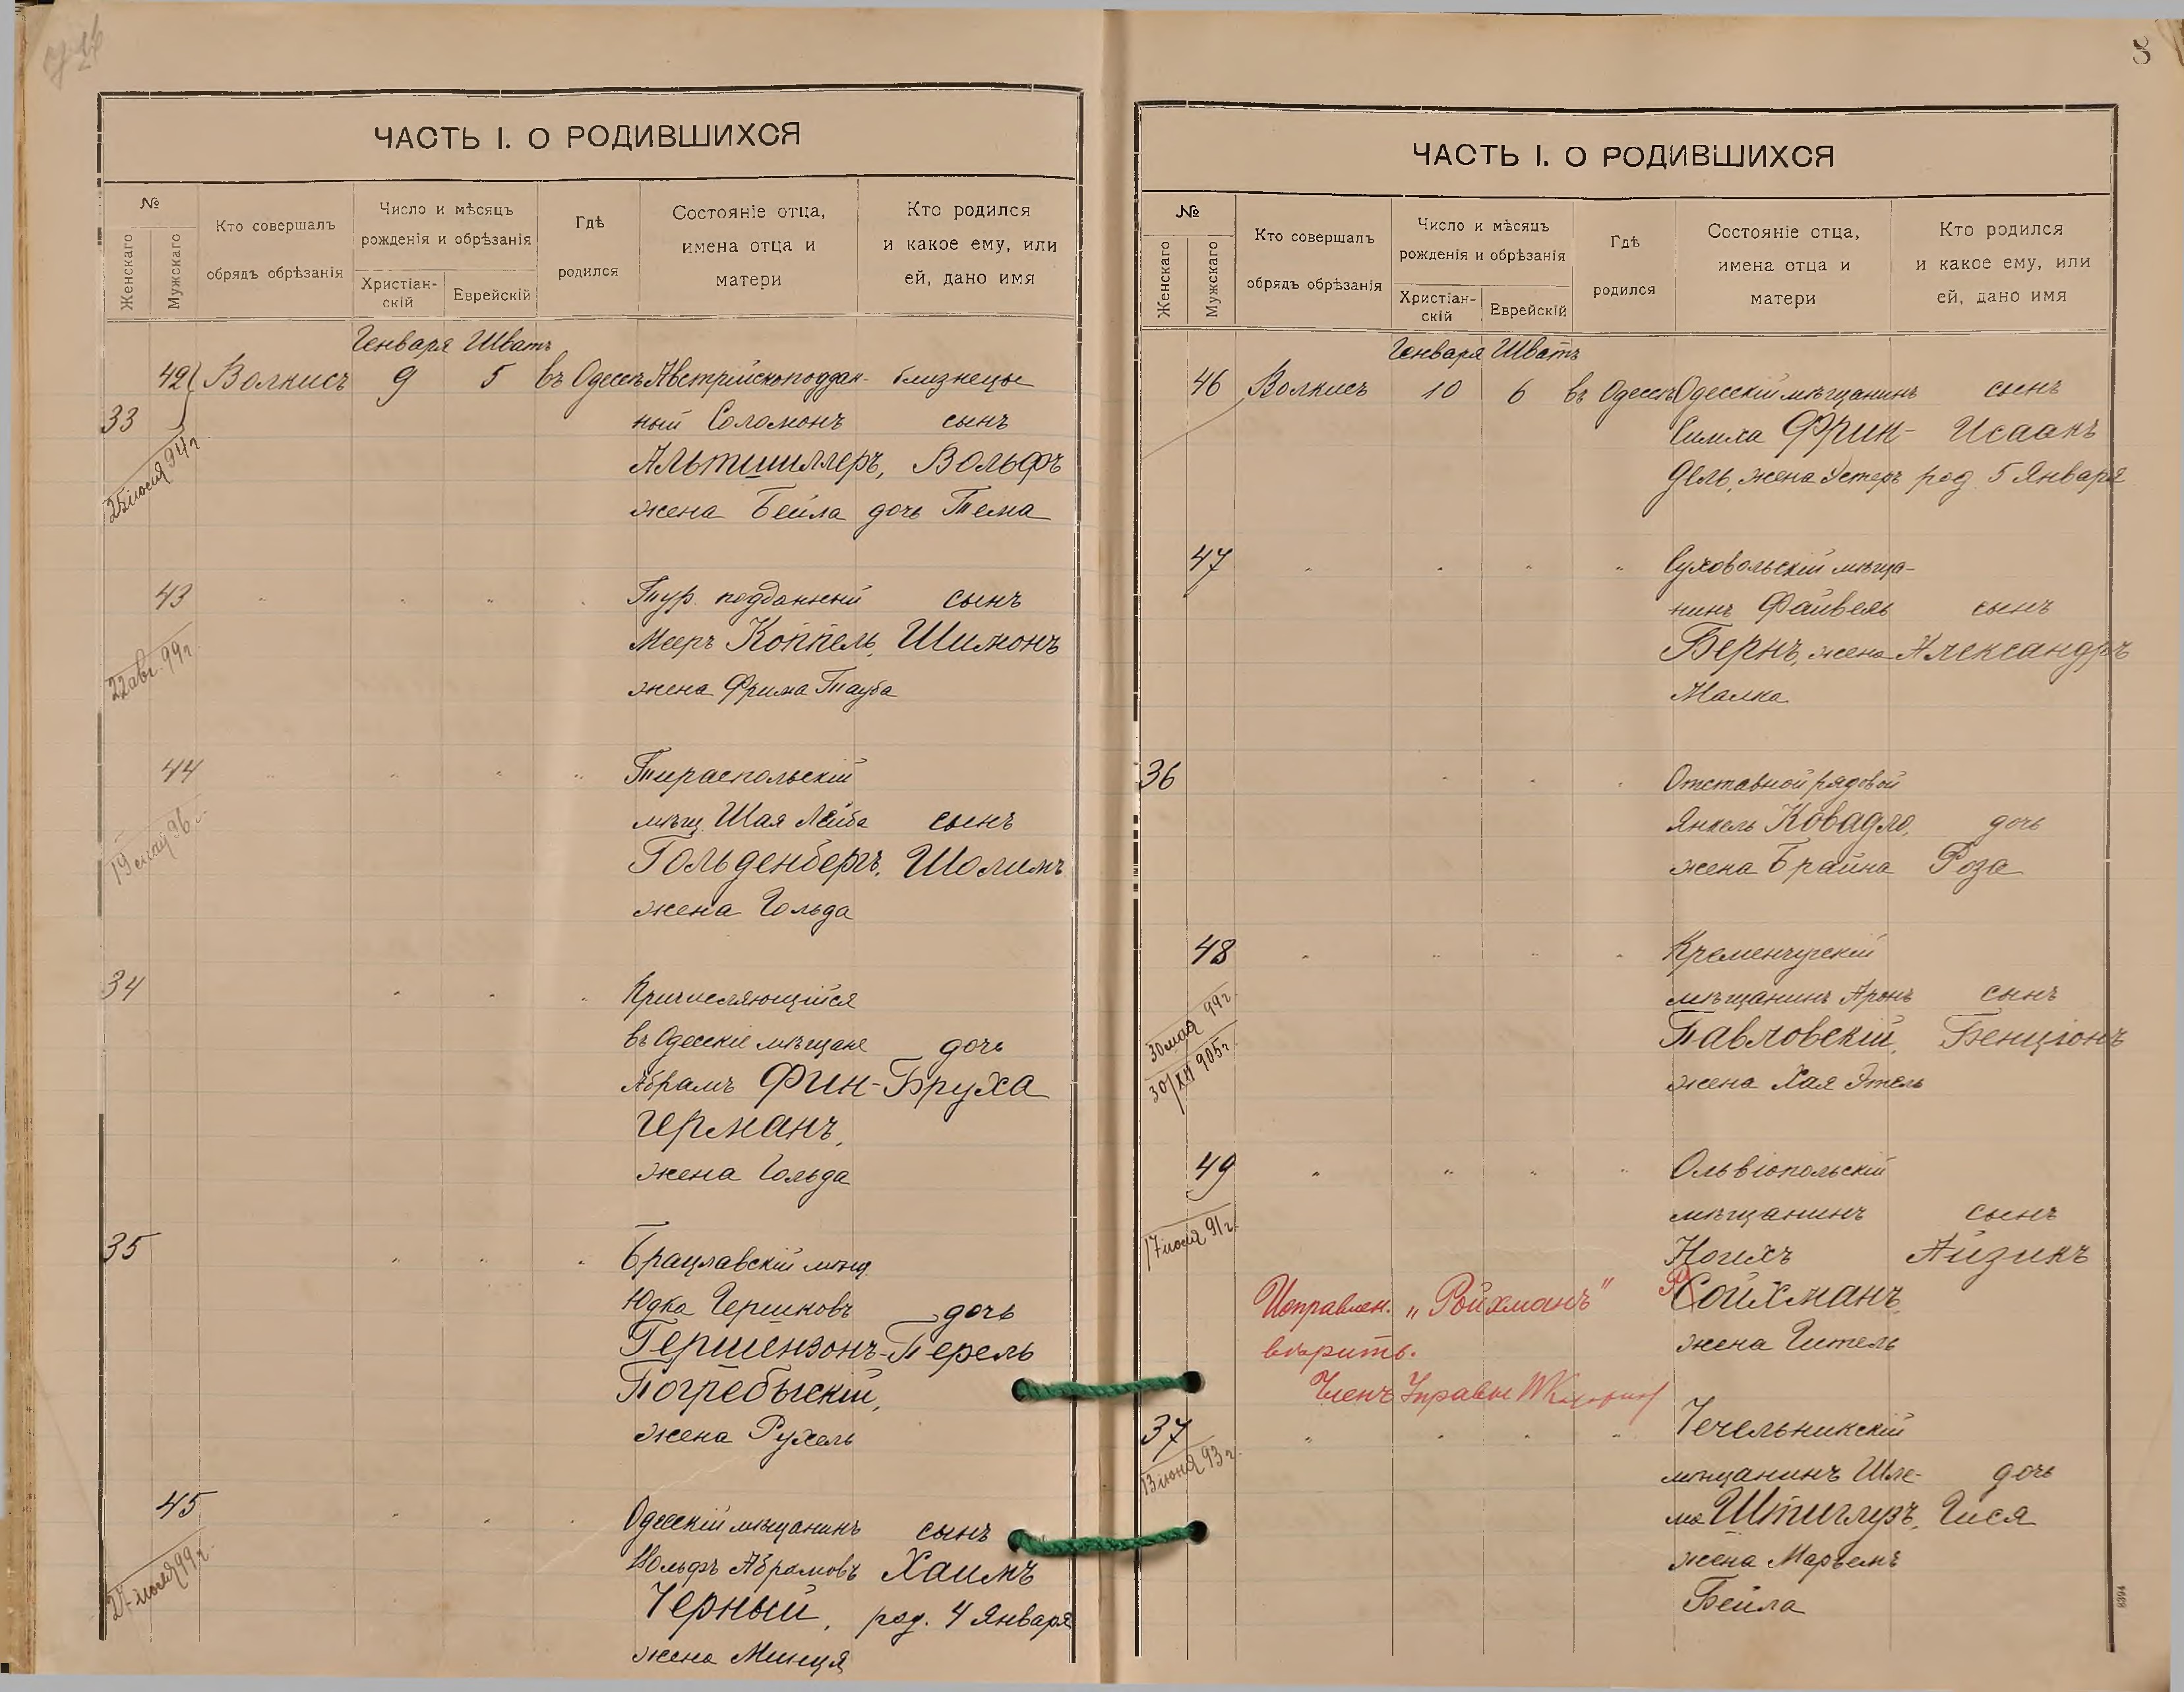 ЧАСТЬ I. О РОДИВШИХСЯ
№
Женскаго
Мужскаго
Кто совершалъ
обрядъ обрѣзанія
Число и мѣсяцъ
рожденія и обрѣзанія
Христіан-
скій
Еврейскій
Гдѣ
родился
Состояніе отца,
имена отца и
матери
Кто родился
и какое ему, или
ей, дано имя
Генваря Шватъ
42 Волкисъ 9 5 въ Одессѣ Австрійскоподдан- близнецы
33 ный Соломонъ сынъ
25 іюля 94 г.
Альтшиллеръ, Вольфъ
жена Бейла дочь Тема
43 " " " " Тур. подданный сынъ
Мееръ Коппель, Шимонъ
22 авг. 99 г.
жена Фрима Тауба
44 " " " " Тираспольскій
мѣщ. Шая Лейба сынъ
19 мая 96 г.
Гольденбергъ, Шолимъ
жена Гольда
34 " " " Причисляющійся
въ Одесскіе мѣщане дочь
Абрамъ Фин- Бруха
германъ,
жена Гольда
35 " " " Брацлавскій мѣщ.
Юдко Гершковъ дочь
Гершензонъ- Перель
Погребыскій,
жена Рухель
45 " " " Одесскій мѣщанинъ сынъ
27 іюля 99 г.
Вольфъ Абрамовъ Хаимъ
Черный, род. 4 Января
жена Минця
8
ЧАСТЬ I. О РОДИВШИХСЯ
№
Женскаго
Мужскаго
Кто совершалъ
обрядъ обрѣзанія
Число и мѣсяцъ
рожденія и обрѣзанія
Христіан-
скій
Еврейскій
Гдѣ
родился
Состояніе отца,
имена отца и
матери
Кто родился
и какое ему, или
ей, дано имя
Генваря Шватъ
46 Волкисъ 10 6 въ Одессѣ Одесскій мѣщанинъ сынъ
Симха Фрин- Исаакъ
дель, жена Эстеръ род. 5 Января
47 " " " " Суховольскій мѣща-
нинъ Файвель сынъ
Бернъ, жена Александръ
Малка
36 " " " Отставной рядовой
Янкель Ковадло, дочь
жена Брайна Роза
48 " " " " Кременчугскій
мѣщанинъ Аронъ сынъ
30 мая 99 г.
30/XII 905 г.
Павловскій, Бенціонъ
жена Хая Этель
49 " " " " Ольвіопольскій
мѣщанинъ сынъ
17 іюля 91 г.
Ногихъ Айзикъ
Исправлен. „Ройхманъ" Р Сойхманъ,
вѣрить. жена Гитель
Членъ Управы
37 " " " " Чечельникскій
13 іюня 93 г.
мѣщанинъ Шле- дочь
ма Штиглузъ, Гися
жена Марьемъ
Бейла
6394